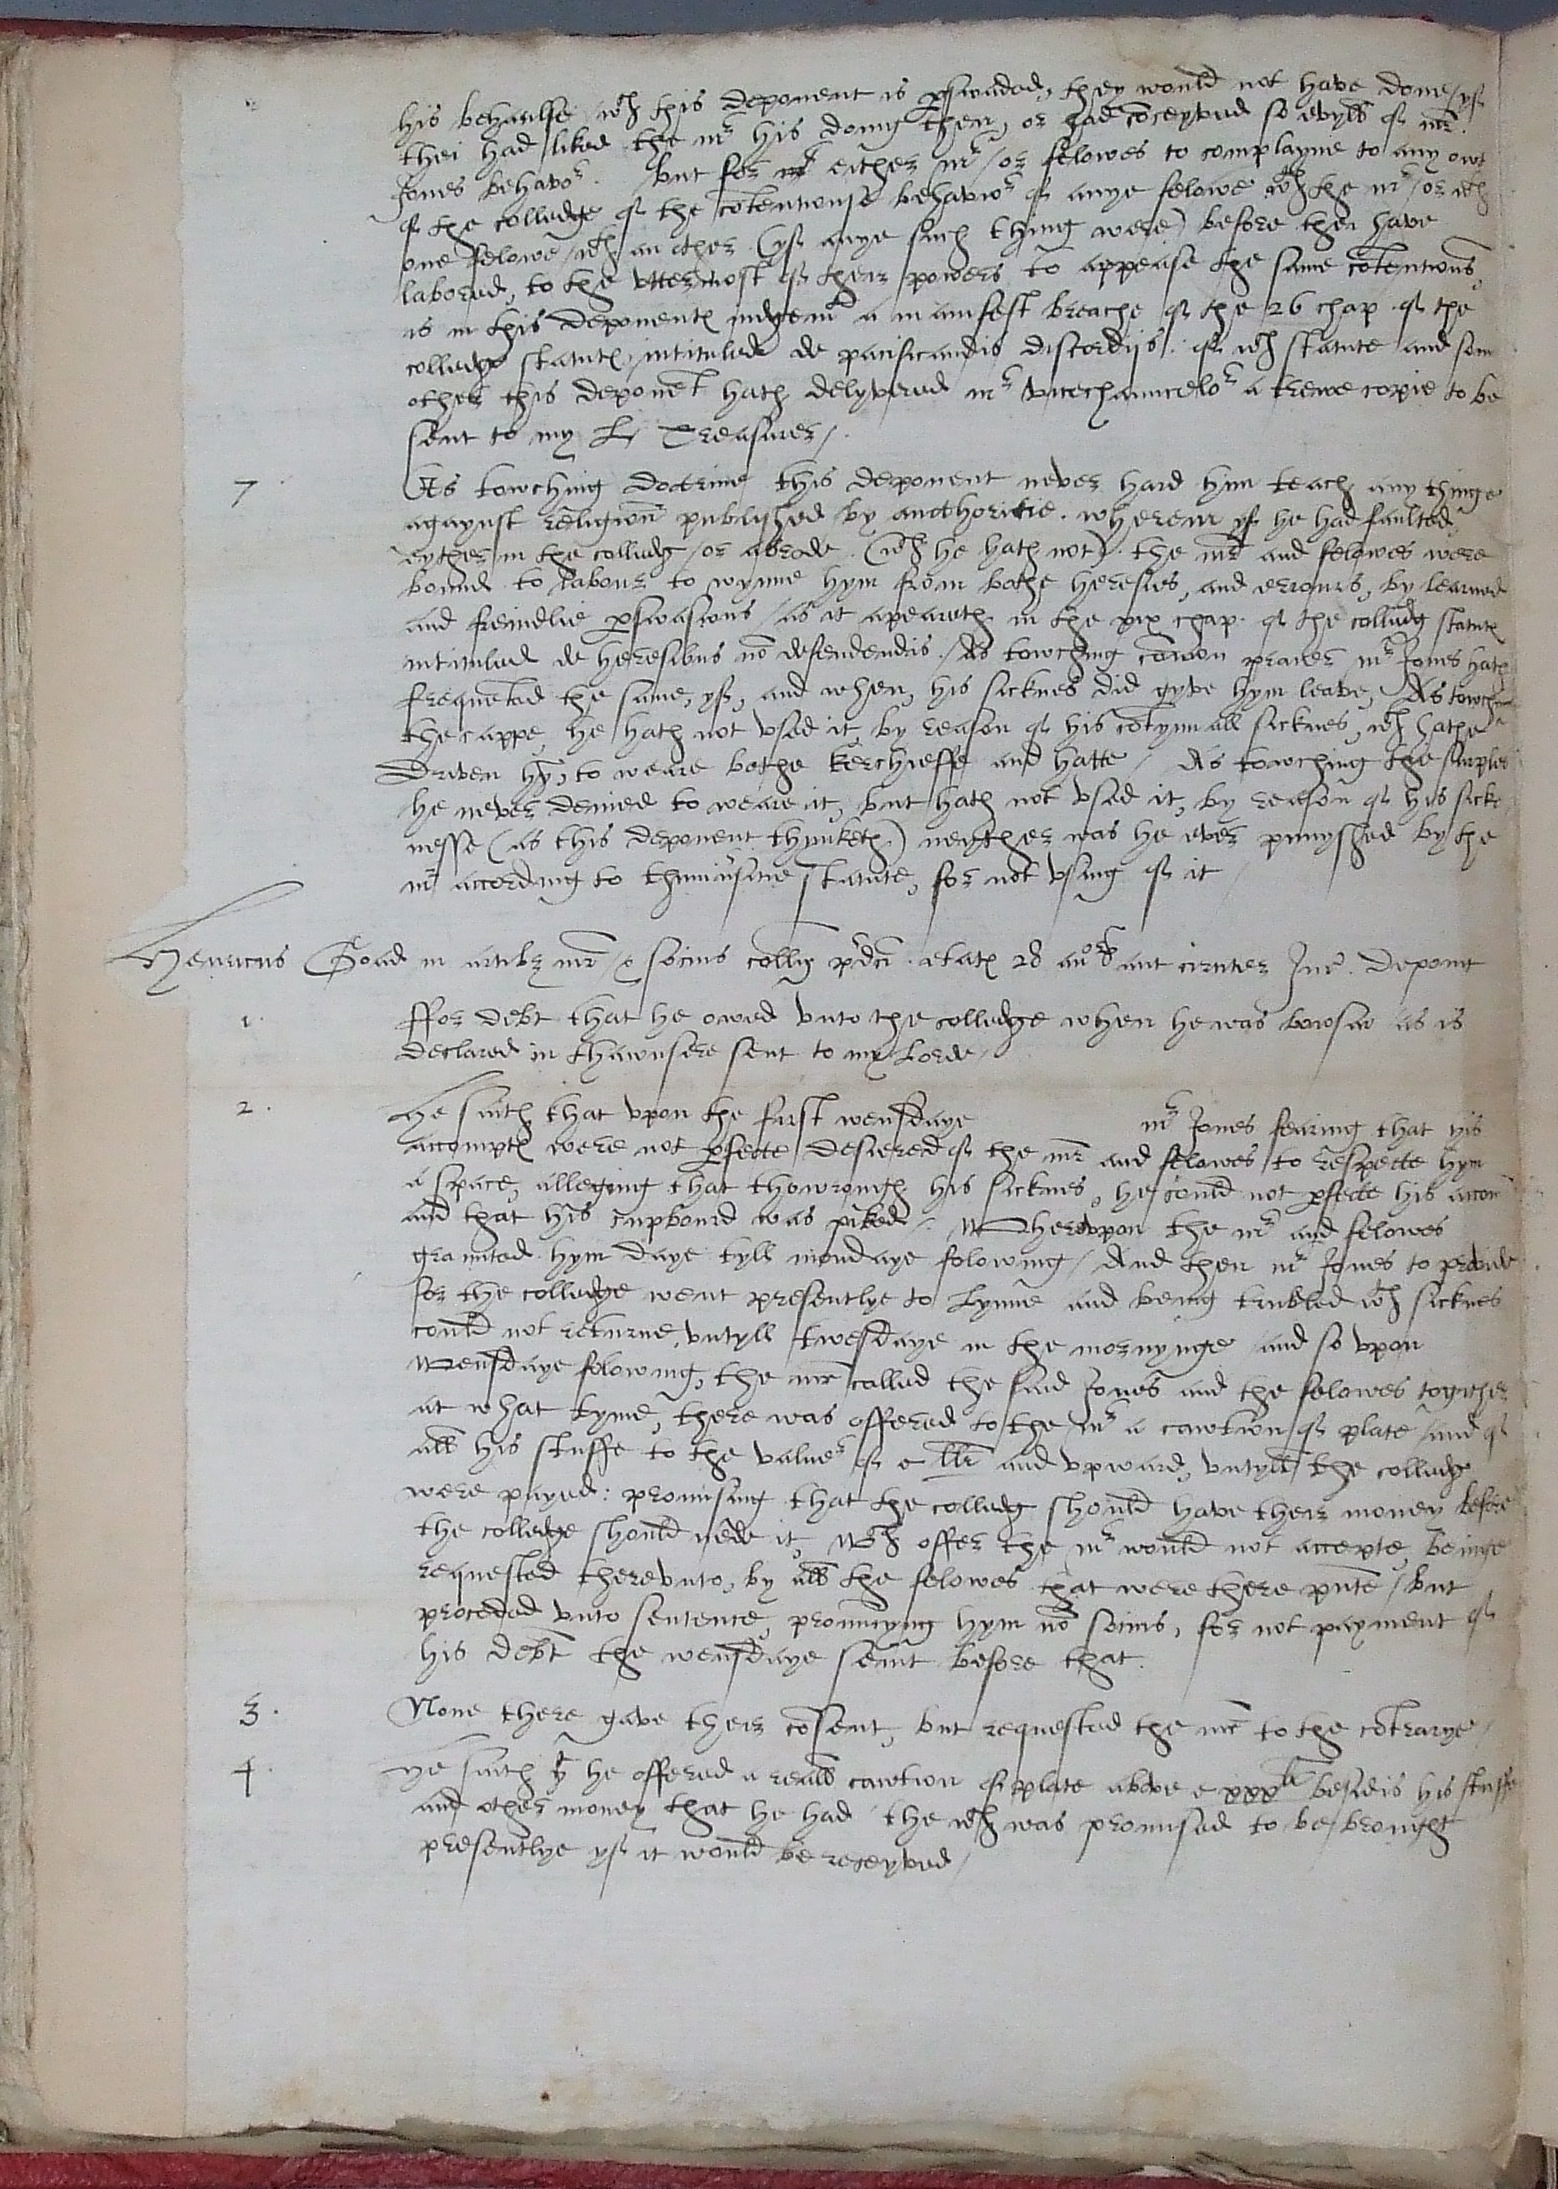 his behaulfe wch this deponent is pswaded, they would not have done yf
thei had liked the mr his doing then, or had cõceyved so evyll of mr
Jones behavor. But for either mr / or felowes to complayne to any owt
of the colledge of the cõtentiouse behavior of anye felowe wth the mr / or wth
one felowe wth an other (yf anye such thing were) before thei have
labored, to the uttermost of their powers to appease the same cõtentions,
is in this deponents judgemt a manifest breache of the 26 chap of the
colledge statuts, intituled de pacificandis discordijs. of wch statute and som
other this deponet hath delyvered mr vicechauncelor a trewe copie to be
sent to my L Treasurer /.
7 As towching doctrine this deponent never hard him teach any thinge
agaynst religion published by authoritie. wherein yf he had faulted
eyther in the colledg / or abrode. (wch he hath not). the mr and felowes were
bound to labour to wynne hym from bothe heresies, and errours, by learned
and freindlie pswasions / as it apeareth in the xix chap. of the colledg statuts
intituled de heresibus nõ defendendis. / As towching cõmon praier mr Jones hath
frequẽted the same, yf, and when, his sicknes did gyve hym leave, As towching
the cappe, he hath not used it, by reason of his cõtynuall sicknes, wch hathe
driven hỹ, to weare bothe kerchieffe and hatte / As towching the surples
he never denied to weare it, but hath not used it, by reason of his sicke
nesse (as this deponent thynketh) neyther was he ever punyshed by the
mr according to thuniversitie statute, for not using of it
Henricus Goad in artibz mr & socius collig pdci. etatis 28 anorũ aut circiter Jur. deponit
1. ffor debt that he owed unto the colledge when he was bowsar as is
declared in thawnsere sent to my Lorde /
2. He saith that upon the first wensdaye mr Jones fearing that his
accompts were not pfecte desiered of the mr and felowes to respecte hym
a space, alleging that thowrough his sicknes, he could not pfecte his accou
and that his cupbourd was piked /. Whereupon the mr and felowes
graunted hym daye tyll mondaye folowing / And then mr Jones to provide
for the colledge went presentlye to Lynne and being trubled wth sicknes
could not returne, untyll twesdaye in the mornynge and so upon
Wensdaye folowing, the mr called the said Jones and the felowes together
at what tyme, there was offered to the mr a cawtion of plate and of
all his stuffe to the value of c lli and upward, untyll the colledg
were payed: promising that the colledg should have their money before
the colledge should nede it, wch offer the mr would not accepte, beinge
requested thereunto, by all the felowes that were there pñte / but
proceded unto sentence, prouncyng hym nõ socius, for not payment of
his debt the wensdaye seãnt before that.
3. None there gave their cõsent, but requested the mr to the cõtrarye /
4. He saith yt he offered a reall cawtion of plate above c xxx li besidis his stuffe
and other money that he had the wch was promised to be brought
presentlye yf it would be receyved /